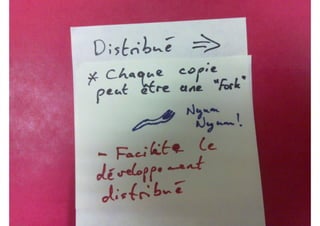 Distribué ⇒
* Chaque copie
peut être une "Fork"
Nyum
Nyum!
- Facilite le
développement
distribué